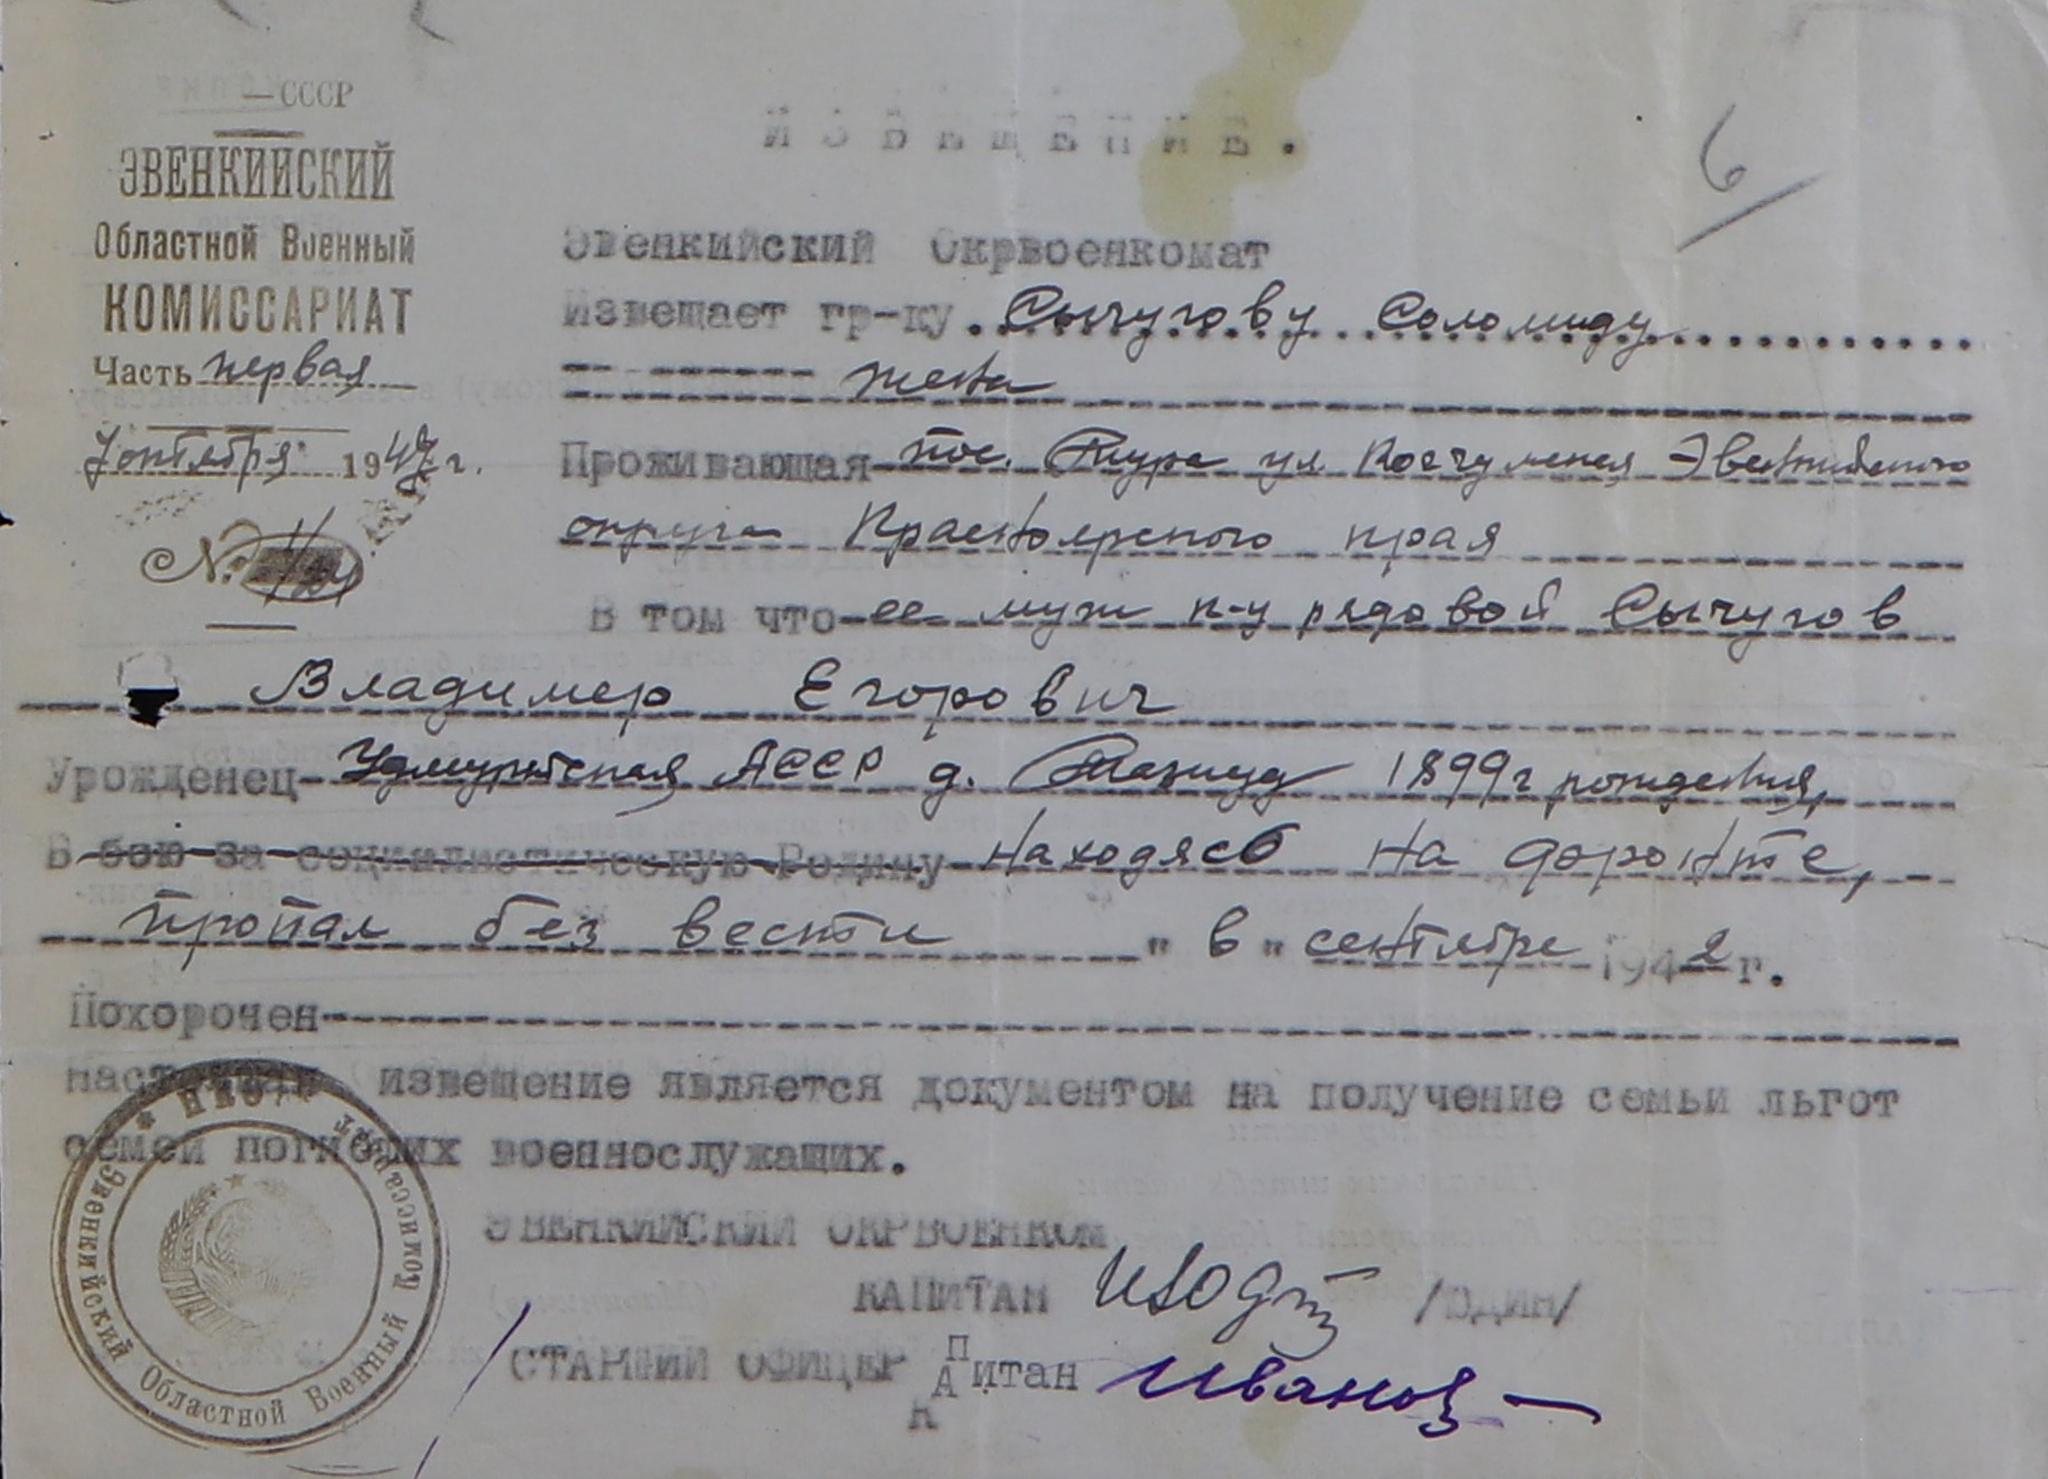 — СССР
ЭВЕНКИЙСКИЙ
Областной Военный
КОМИССАРИАТ
Часть первая
7 октября 1947 г.
№
6
ИЗВЕЩЕНИЕ.
Эвенкийский Окрвоенкомат
Извещает гр-ку Сычугову Соломиду
жена
Проживающая пос. Тура ул. Эвенкийского
округа Красноярского края
В том что ее муж к-у рядовой Сычугов
Владимер Егорович
Урожденец Удмуртская АССР д. 1899 г рождения,
В бою за социалистическую Родину находясь на фронте,
пропал без вести " в " сентябре 1942 г.
Похорочен
Настоящам извещение является документом на получение семьи льгот
семей погибших военнослужащих.
ЭВЕНКИЙСКИЙ ОКРВОЕНКОМ
КАПИТАН /ЮДИН/
СТАРШИЙ ОФИЦЕР КАПитан Иванов
Эвенкийский Областной Военный Комиссариат * НКО *